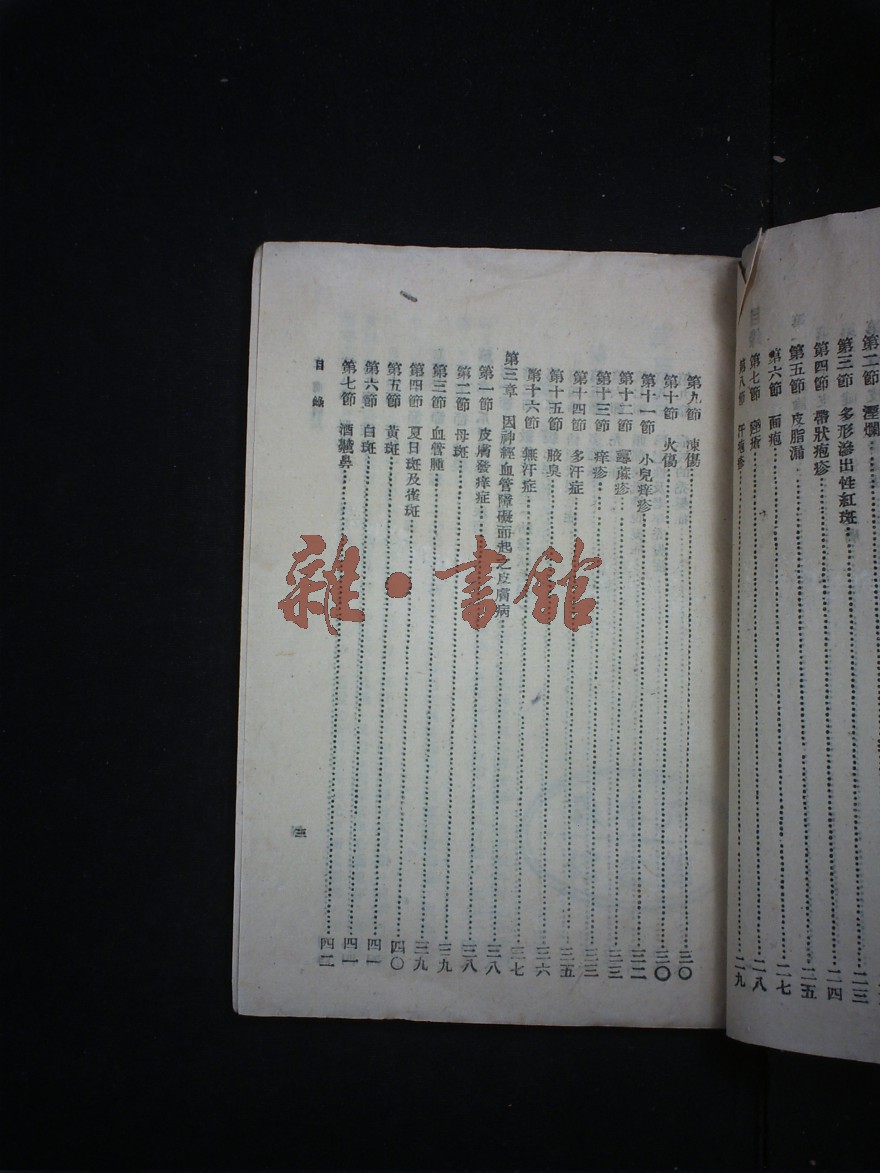 第二節 溼爛
第三節 多形滲出性紅斑……二三
第四節 帶狀疱疹……二四
第五節 皮脂漏……二五
第六節 面疱……二七
第七節 痤瘡……二八
第八節 汗疱疹……二九
第九節 凍傷……三〇
第十節 火傷……三〇
第十一節 小兒痒疹……三二
第十二節 蕁蔴疹……三三
第十三節 痒疹……三三
第十四節 多汗症……三五
第十五節 腋臭……三六
第十六節 無汗症……三七
第三章 因神經血管障礙而起之皮膚病……三八
第一節 皮膚發痒症……三八
第二節 母斑……三九
第三節 血管腫……三九
第四節 夏日斑及雀斑……四〇
第五節 黃斑……四一
第六節 白斑……四一
第七節 酒齄鼻……四二
目錄
三
雜·書館